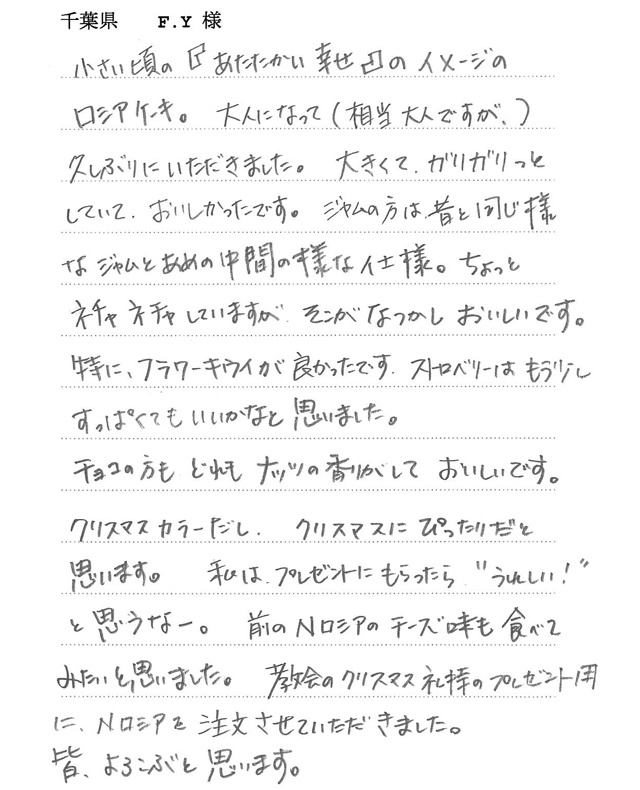 千葉県　F.Y 様
小さい頃の『あたたかい幸せ』のイメージの
ロシアケーキ。 大人になって(相当大人ですが、)
久しぶりにいただきました。 大きくて、ガリガリっと
していて、おいしかったです。 ジャムの方は、昔と同じ様
な ジャムとあめの中間の様な仕様。ちょっと
ネチャネチャしていますが、そこがなつかし おいしいです。
特に、フラワーキウイが良かったです。ストロベリーは もう少し
すっぱくても いいかなと思いました。
チョコの方も どれも ナッツの香りがして おいしいです。
クリスマスカラーだし、 クリスマスに ぴったりだと
思います。 私は、プレゼントにもらったら、"うれしい!"
と思うなー。 前のNロシアのチーズ味も 食べて
みたいと、思いました。 教会のクリスマス礼拝のプレゼント用
に、Nロシアを 注文させていただきました。
皆、よろこぶと思います。